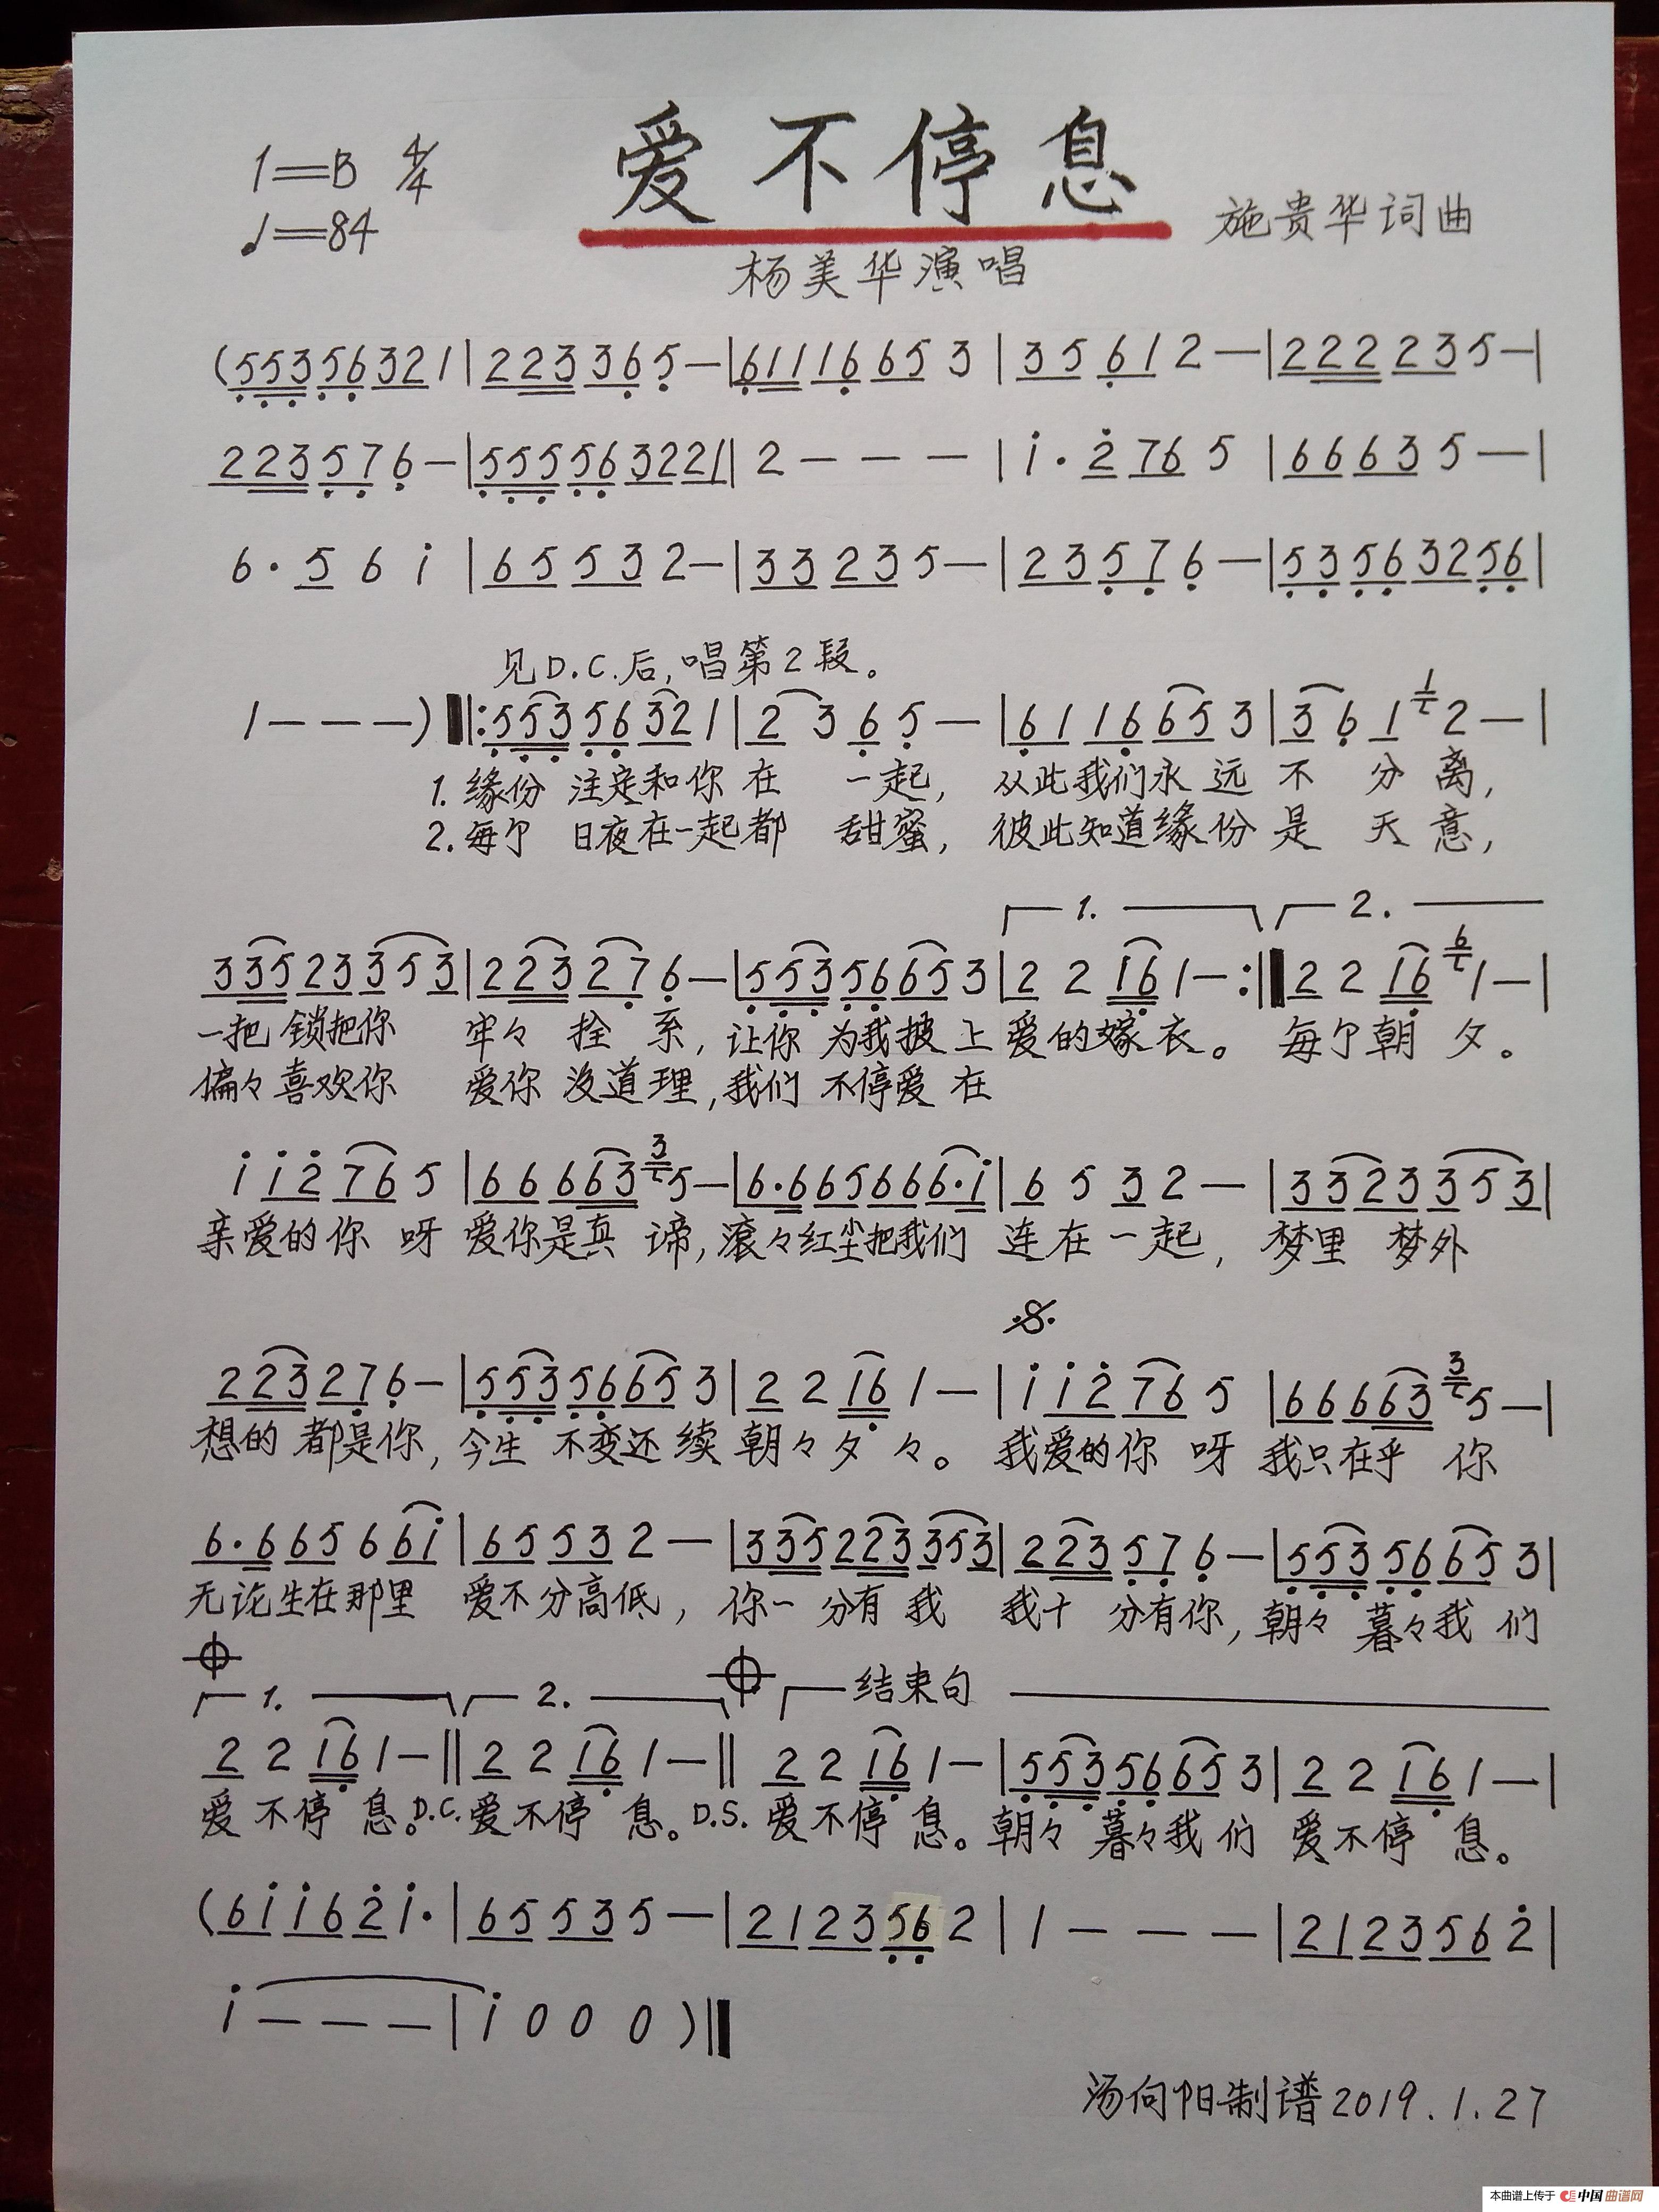 1=B 4/4
爱不停息
♩=84
施贵华词曲
杨美华演唱
(55356321|223365—|61116653|35612—|222235—|
223576—|555563221|2———|i·2765|66635—|
6·56i|65532—|33235—|23576—|53563256|
见D.C.后,唱第2段。
1———)‖:55356321|2365—|6116653|3612—|
1.缘份 注定和你在 一起, 从此我们永远不 分离,
2.每个 日夜在一起都 甜蜜, 彼此知道缘份是 天意,
1. 2.
33523353|223276—|55356653|22161—:‖22161—|
一把锁把你 牢々拴系, 让你为我披上爱的嫁衣。 每个朝夕。
偏々喜欢你 爱你没道理, 我们不停爱在
ii2765|666635—|6·665666·i|6532—|3323353|
亲爱的你呀爱你是真谛, 滚々红尘把我们 连在一起, 梦里梦外
223276—|55356653|22161—|ii2765|666635—|
想的都是你, 今生不变还续朝々夕々。 我爱的你呀 我只在乎你
6·66566i|65532—|335223353|223576—|55356653|
无论生在那里 爱不分高低, 你一分有我 我十分有你, 朝々暮々我们
1. 2. 结束句
22161—‖22161—‖22161—|55356653|22161—|
爱不停息。D.C.爱不停息。D.S.爱不停息。朝々暮々我们爱不停息。
(6ii62i·|65535—|2123562|1———|2123562|
i———|i000)‖
汤向阳制谱2019.1.27
本曲谱上传于 中国曲谱网